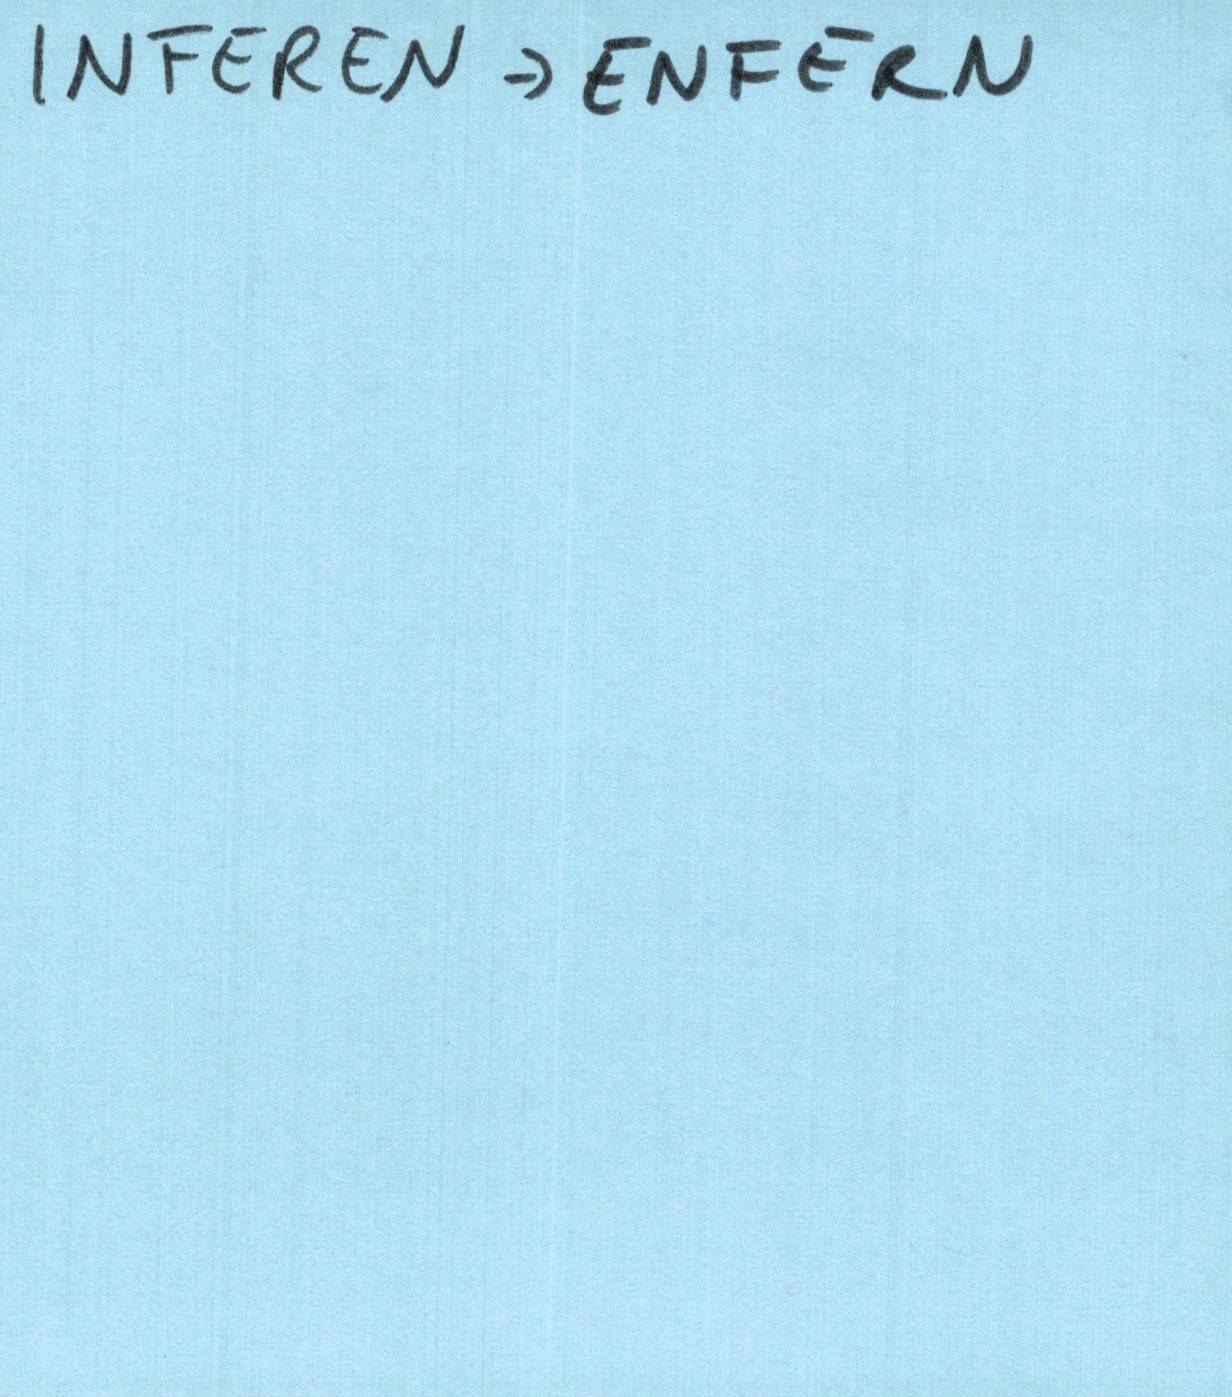 INFEREN → ENFERN